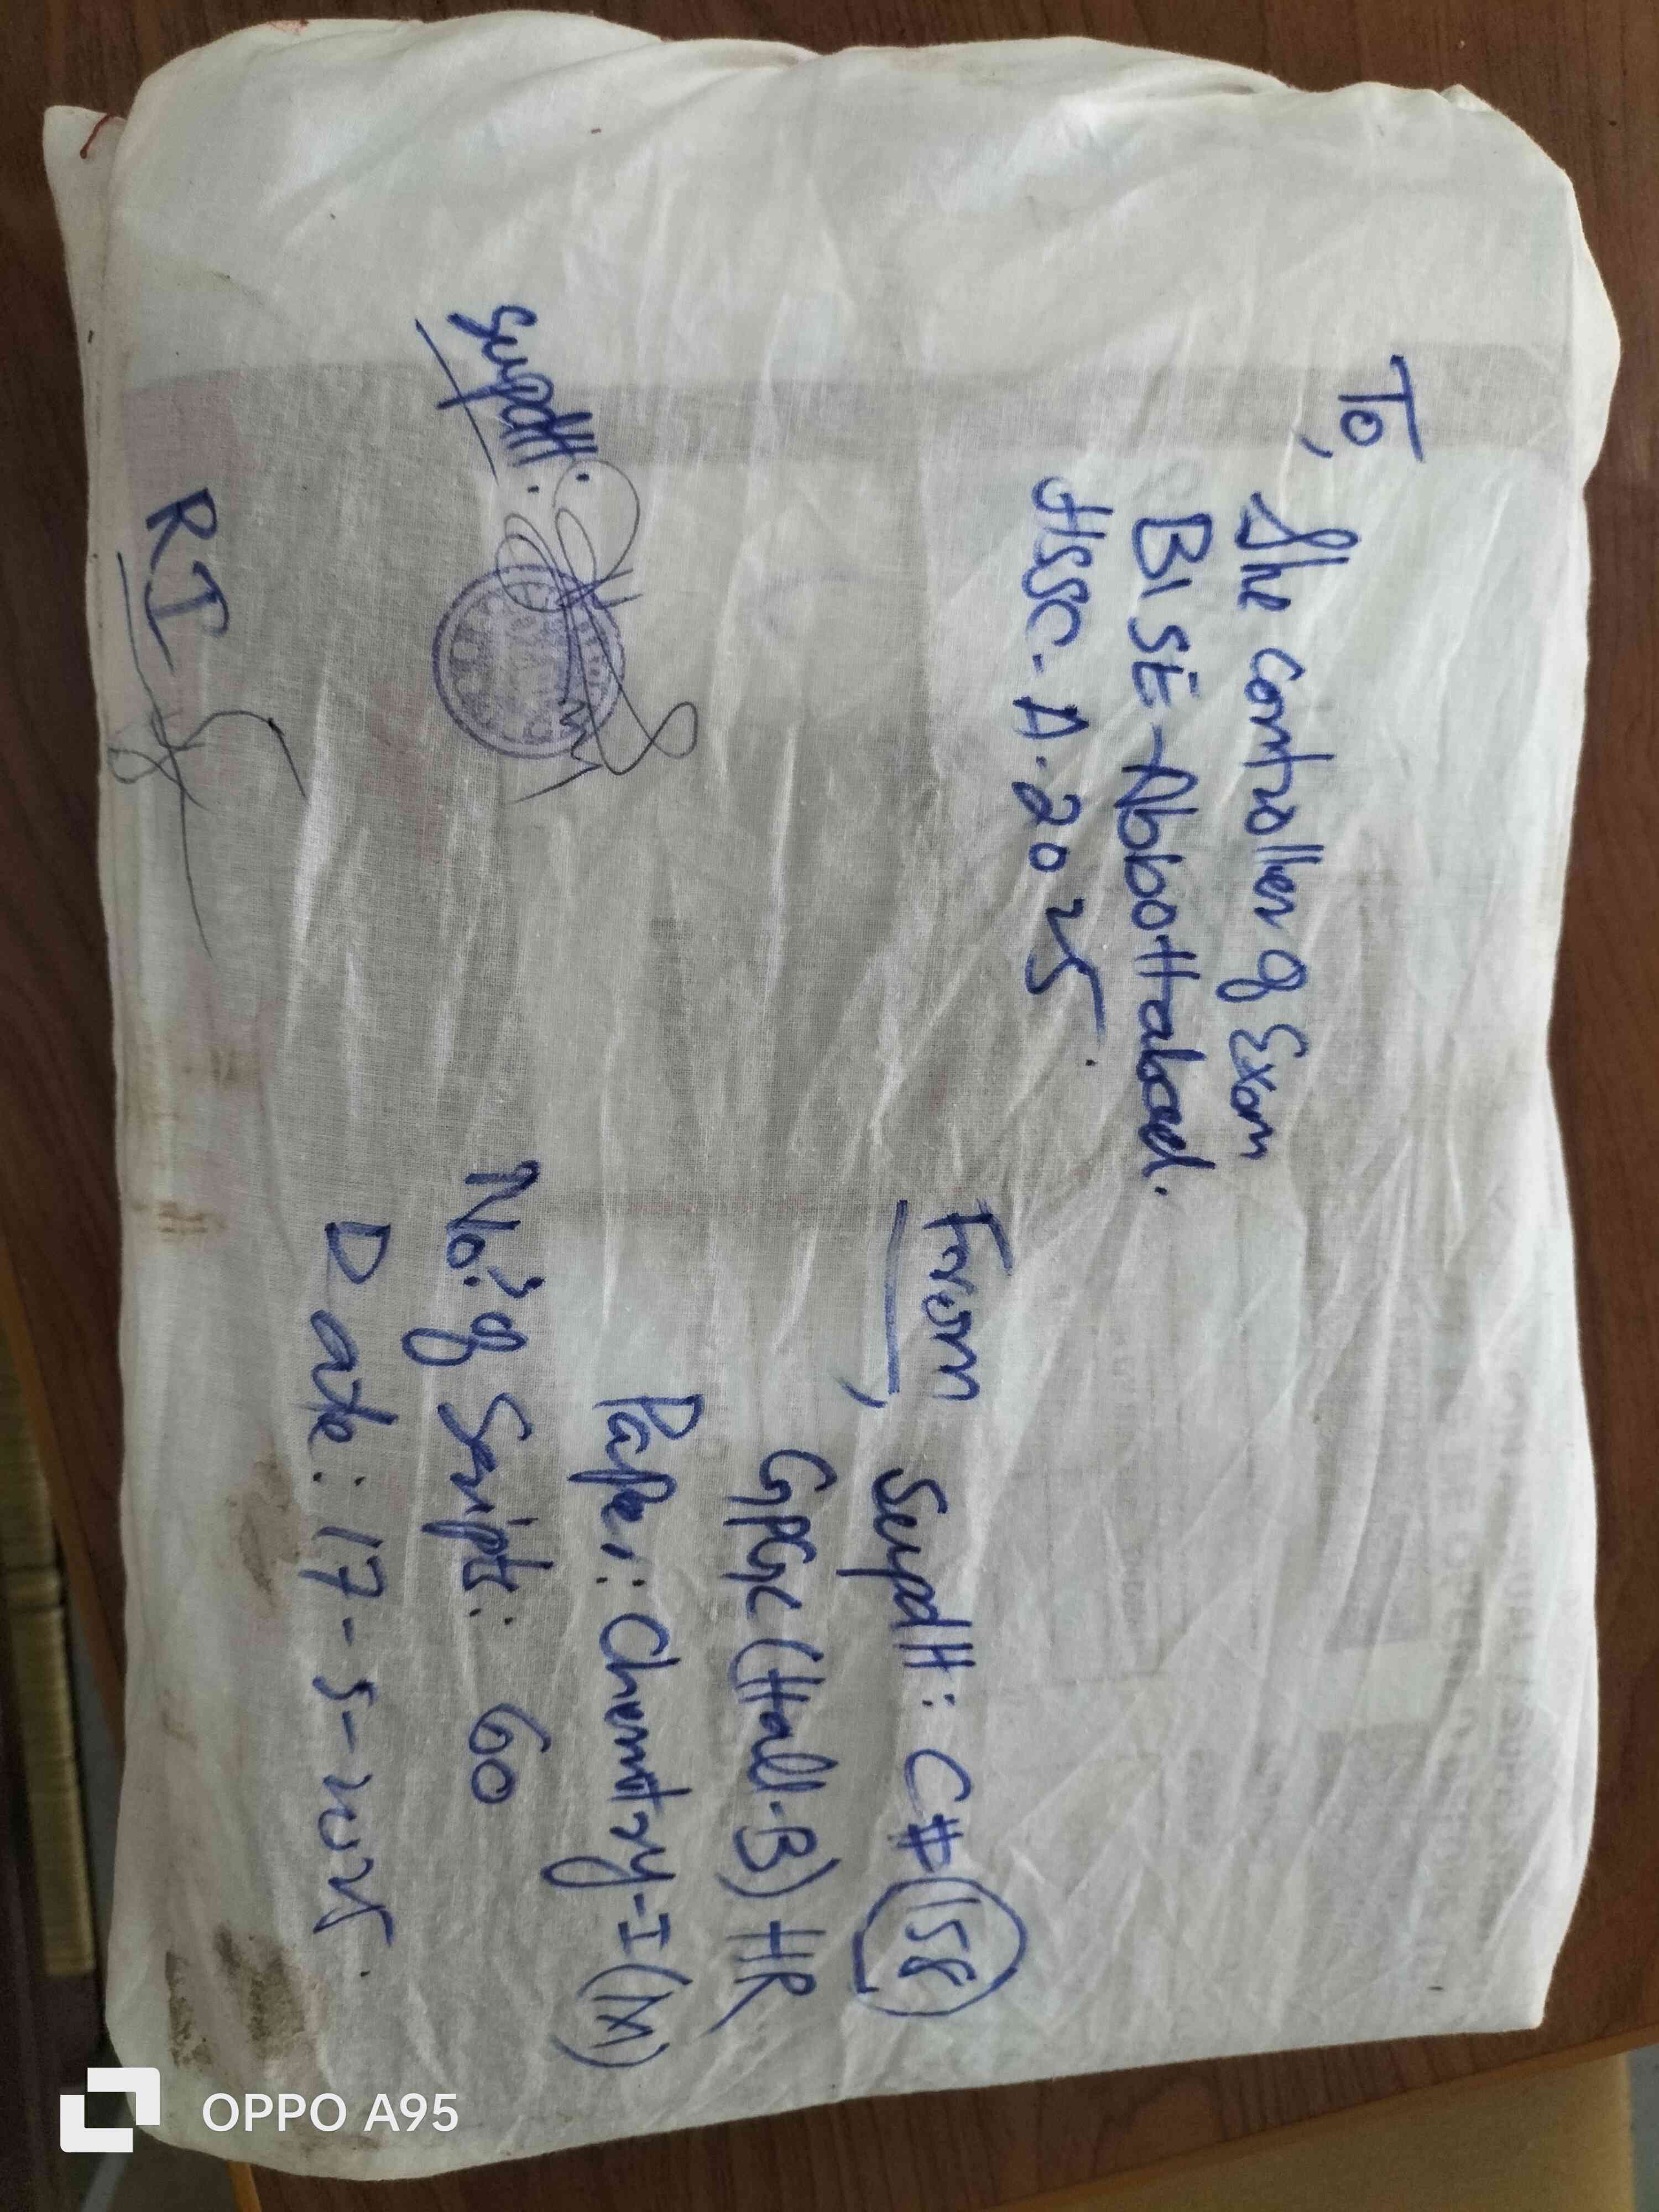 To,
The Controller of Exam
BISE-Abbottabad.
HSSC-A-2025.
From,
Supdtt: C# 158
GPGC (Hall-B) HR
Paper: Chemistry-I (M)
No: of Scripts: 60
Date: 17-5-2025.
Supdtt:
RI
OPPO A95